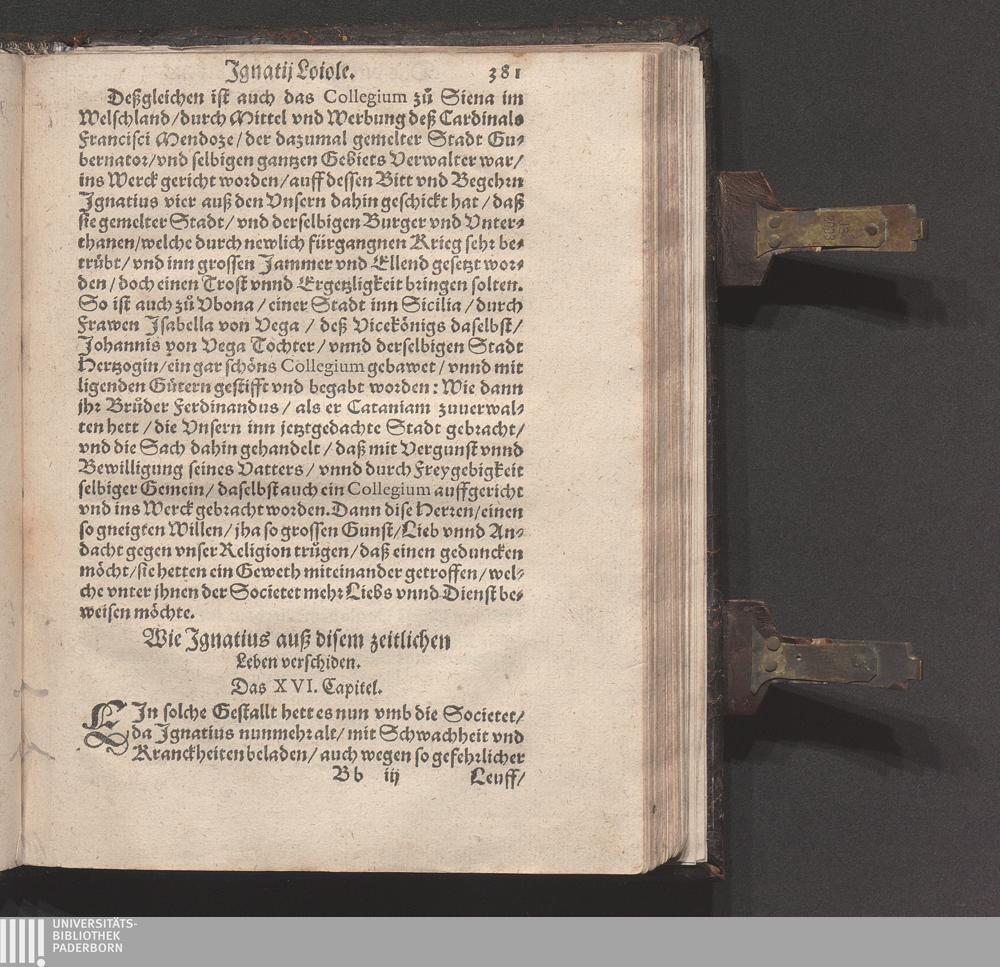 Ignatij Loiole. 381
Deßgleichen ist auch das Collegium zů Siena im
Welschland/durch Mittel vnd Werbung deß Cardinals
Francisci Mendoze/der dazumal gemelter Stadt Gu-
bernator/vnd selbigen gantzen Gebiets Verwalter war/
ins Werck gericht worden/auff dessen Bitt vnd Begehrn
Ignatius vier auß den Vnsern dahin geschickt hat/daß
sie gemelter Stadt/vnd derselbigen Burger vnd Vnter-
thanen/welche durch newlich fürgangnen Krieg sehr be-
trübt/vnd inn grossen Jammer vnd Ellend gesetzt wor-
den/doch einen Trost vnnd Ergetzligkeit bringen solten.
So ist auch zů Vbona/einer Stadt inn Sicilia/durch
Frawen Isabella von Vega/deß Vicekönigs daselbst/
Johannis von Vega Tochter/vnnd derselbigen Stadt
Hertzogin/ein gar schöns Collegium gebawet/vnnd mit
ligenden Gütern gestifft vnd begabt worden: Wie dann
jhr Brůder Ferdinandus/als er Cataniam zuuerwal-
ten hett/die Vnsern inn jetztgedachte Stadt gebracht/
vnd die Sach dahin gehandelt/daß mit Vergunst vnnd
Bewilligung seines Vatters/vnnd durch Freygebigkeit
selbiger Gemein/daselbst auch ein Collegium auffgericht
vnd ins Werck gebracht worden. Dann dise Herren/einen
so gneigten Willen/jha so grossen Gunst/Lieb vnnd An-
dacht gegen vnser Religion trůgen/daß einen geduncken
möcht/sie hetten ein Geweth miteinander getroffen/wel-
che vnter jhnen der Societet mehr Liebs vnnd Dienst be-
weisen möchte.
Wie Ignatius auß disem zeitlichen
Leben verschiden.
Das XVI. Capitel.
EIn solche Gestallt hett es nun vmb die Societet/
da Ignatius nunmehr alt/mit Schwachheit vnd
Kranckheiten beladen/auch wegen so gefehrlicher
Bb iij Leuff/
UNIVERSITÄTS-
BIBLIOTHEK
PADERBORN